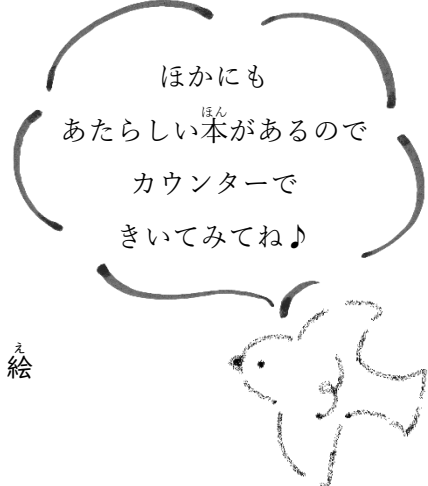 ほかにも
あたらしい本があるので
カウンターで
きいてみてね♪
絵